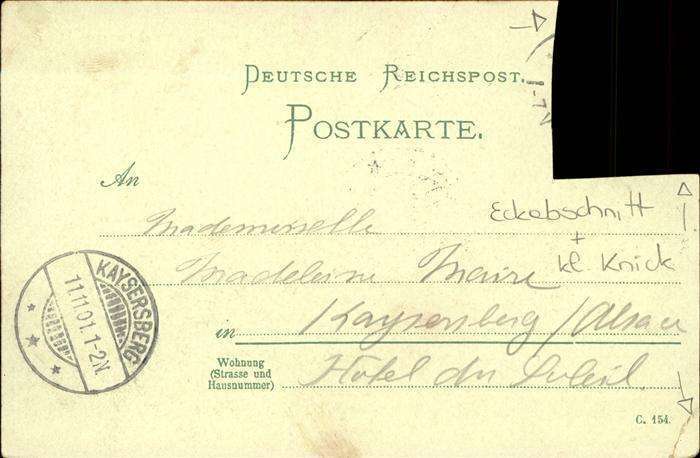 DEUTSCHE REICHSPOST.
POSTKARTE.
An
Mademoiselle
Eckabschnitt
+
kl. Knick
Madeleine Maire
in Kaysersberg/Alsace
Wohnung
(Strasse und
Hausnummer)
Hôtel du Soleil.
KAYSERSBERG
11.11.01. 1-2N
C. 154.